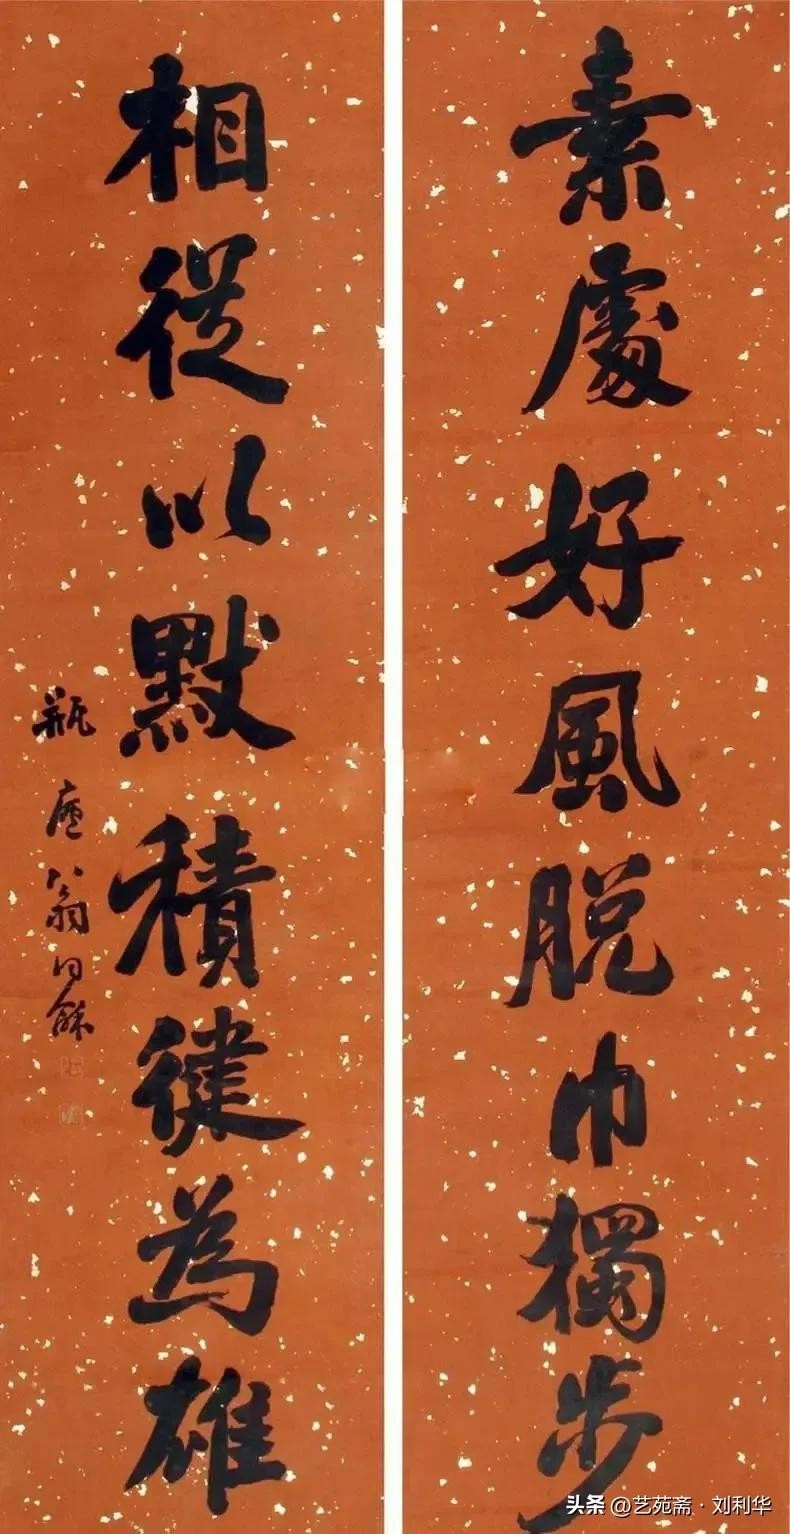 素處好風脫巾獨步
相從以默積徤為雄
瓶廬翁同龢
头条 @艺苑斋·刘利华